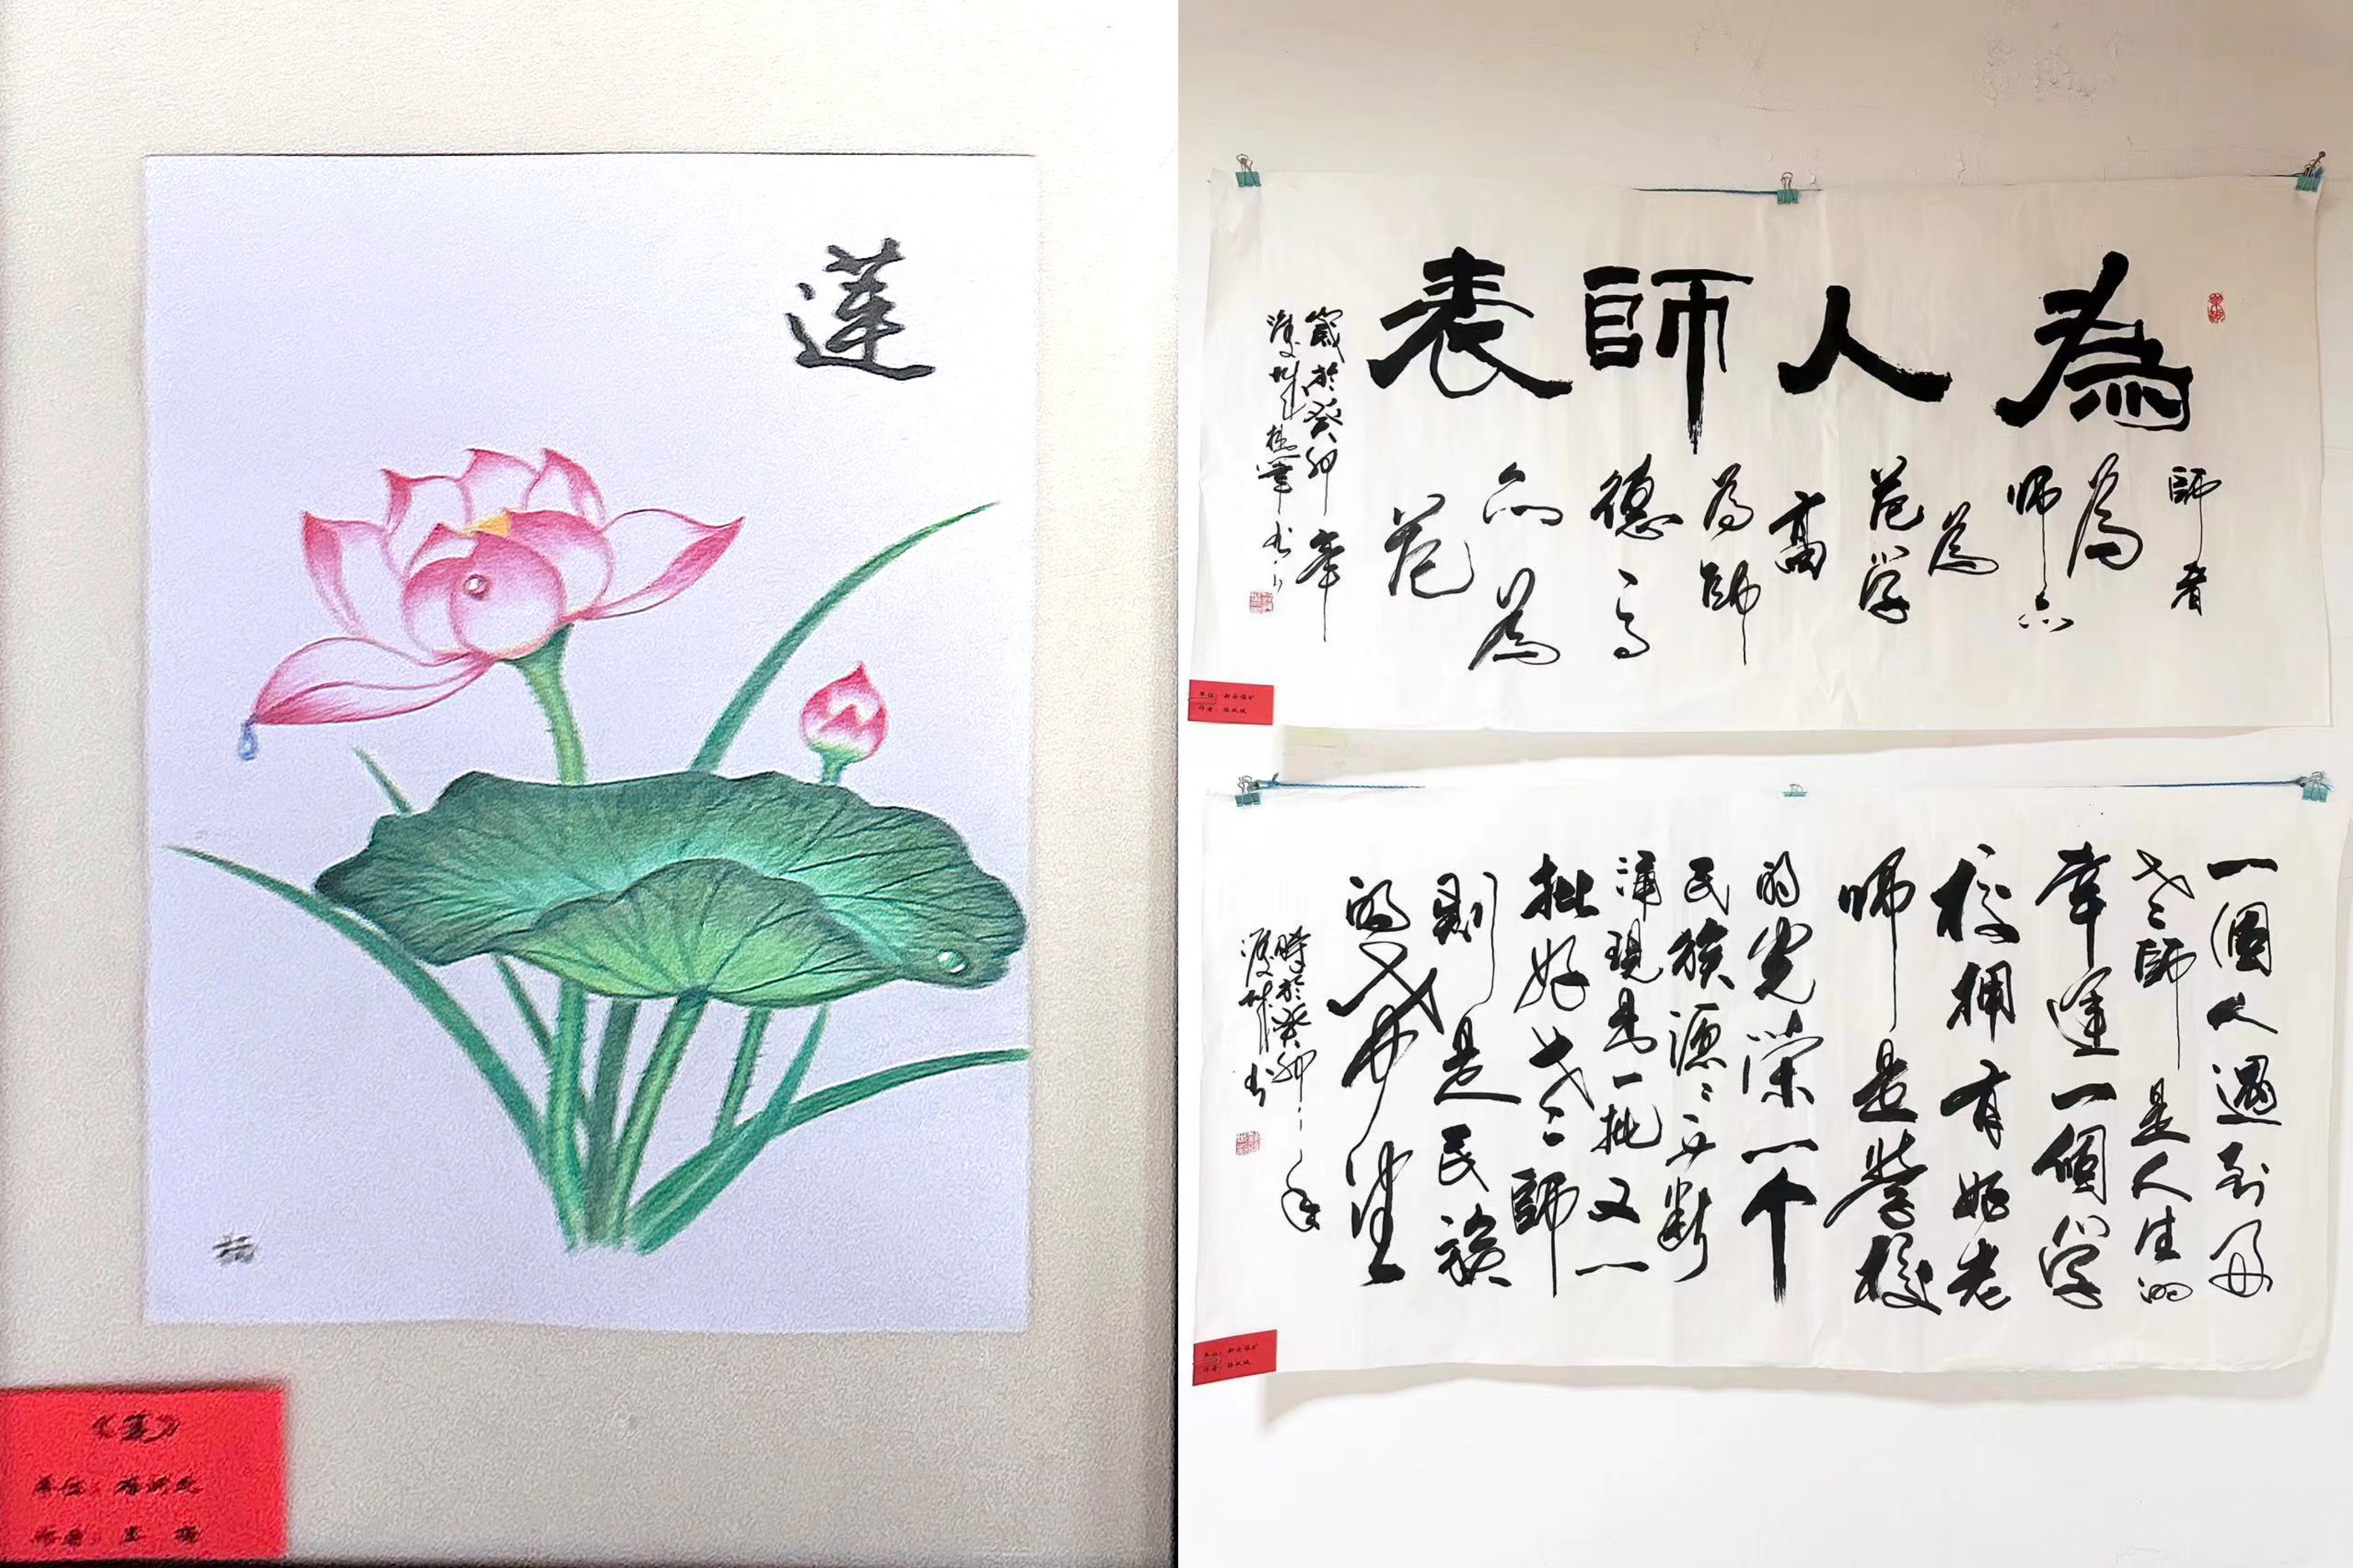 莲
《莲》
单位：
作者：
為人師表
師者
為
师亦
為
范学
高
為師
德高
而為
范
歲於癸卯年
单位：新安煤矿
作者：
一個人遇到好
老師是人生的
幸運一個学
校拥有好老
师是学校
的光荣一个
民族源源不断
涌現出一批又一
批好老師
則是民族
的希望
時於癸卯年
单位：新安煤矿
作者：